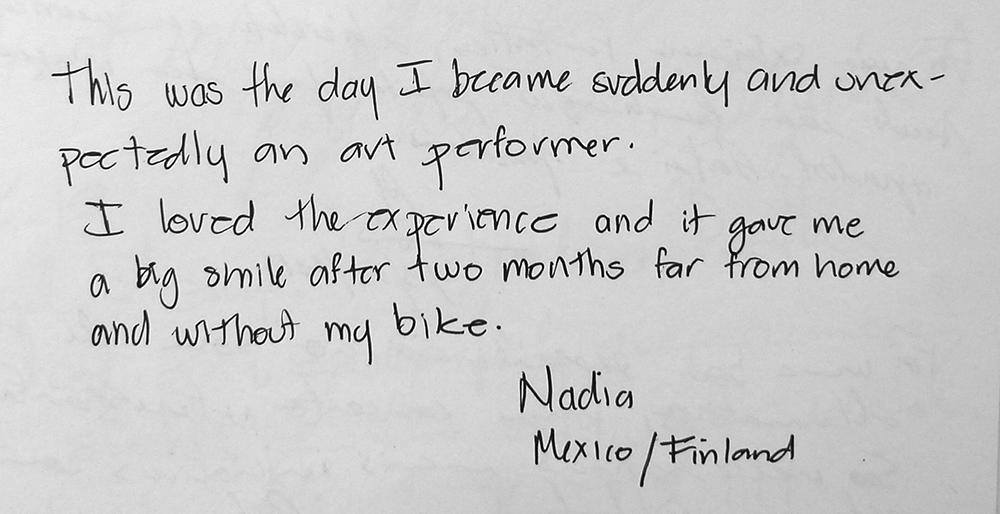 This was the day I became suddenly and unex-
pectedly an art performer.
I loved the experience and it gave me
a big smile after two months far from home
and without my bike.
Nadia
Mexico/Finland